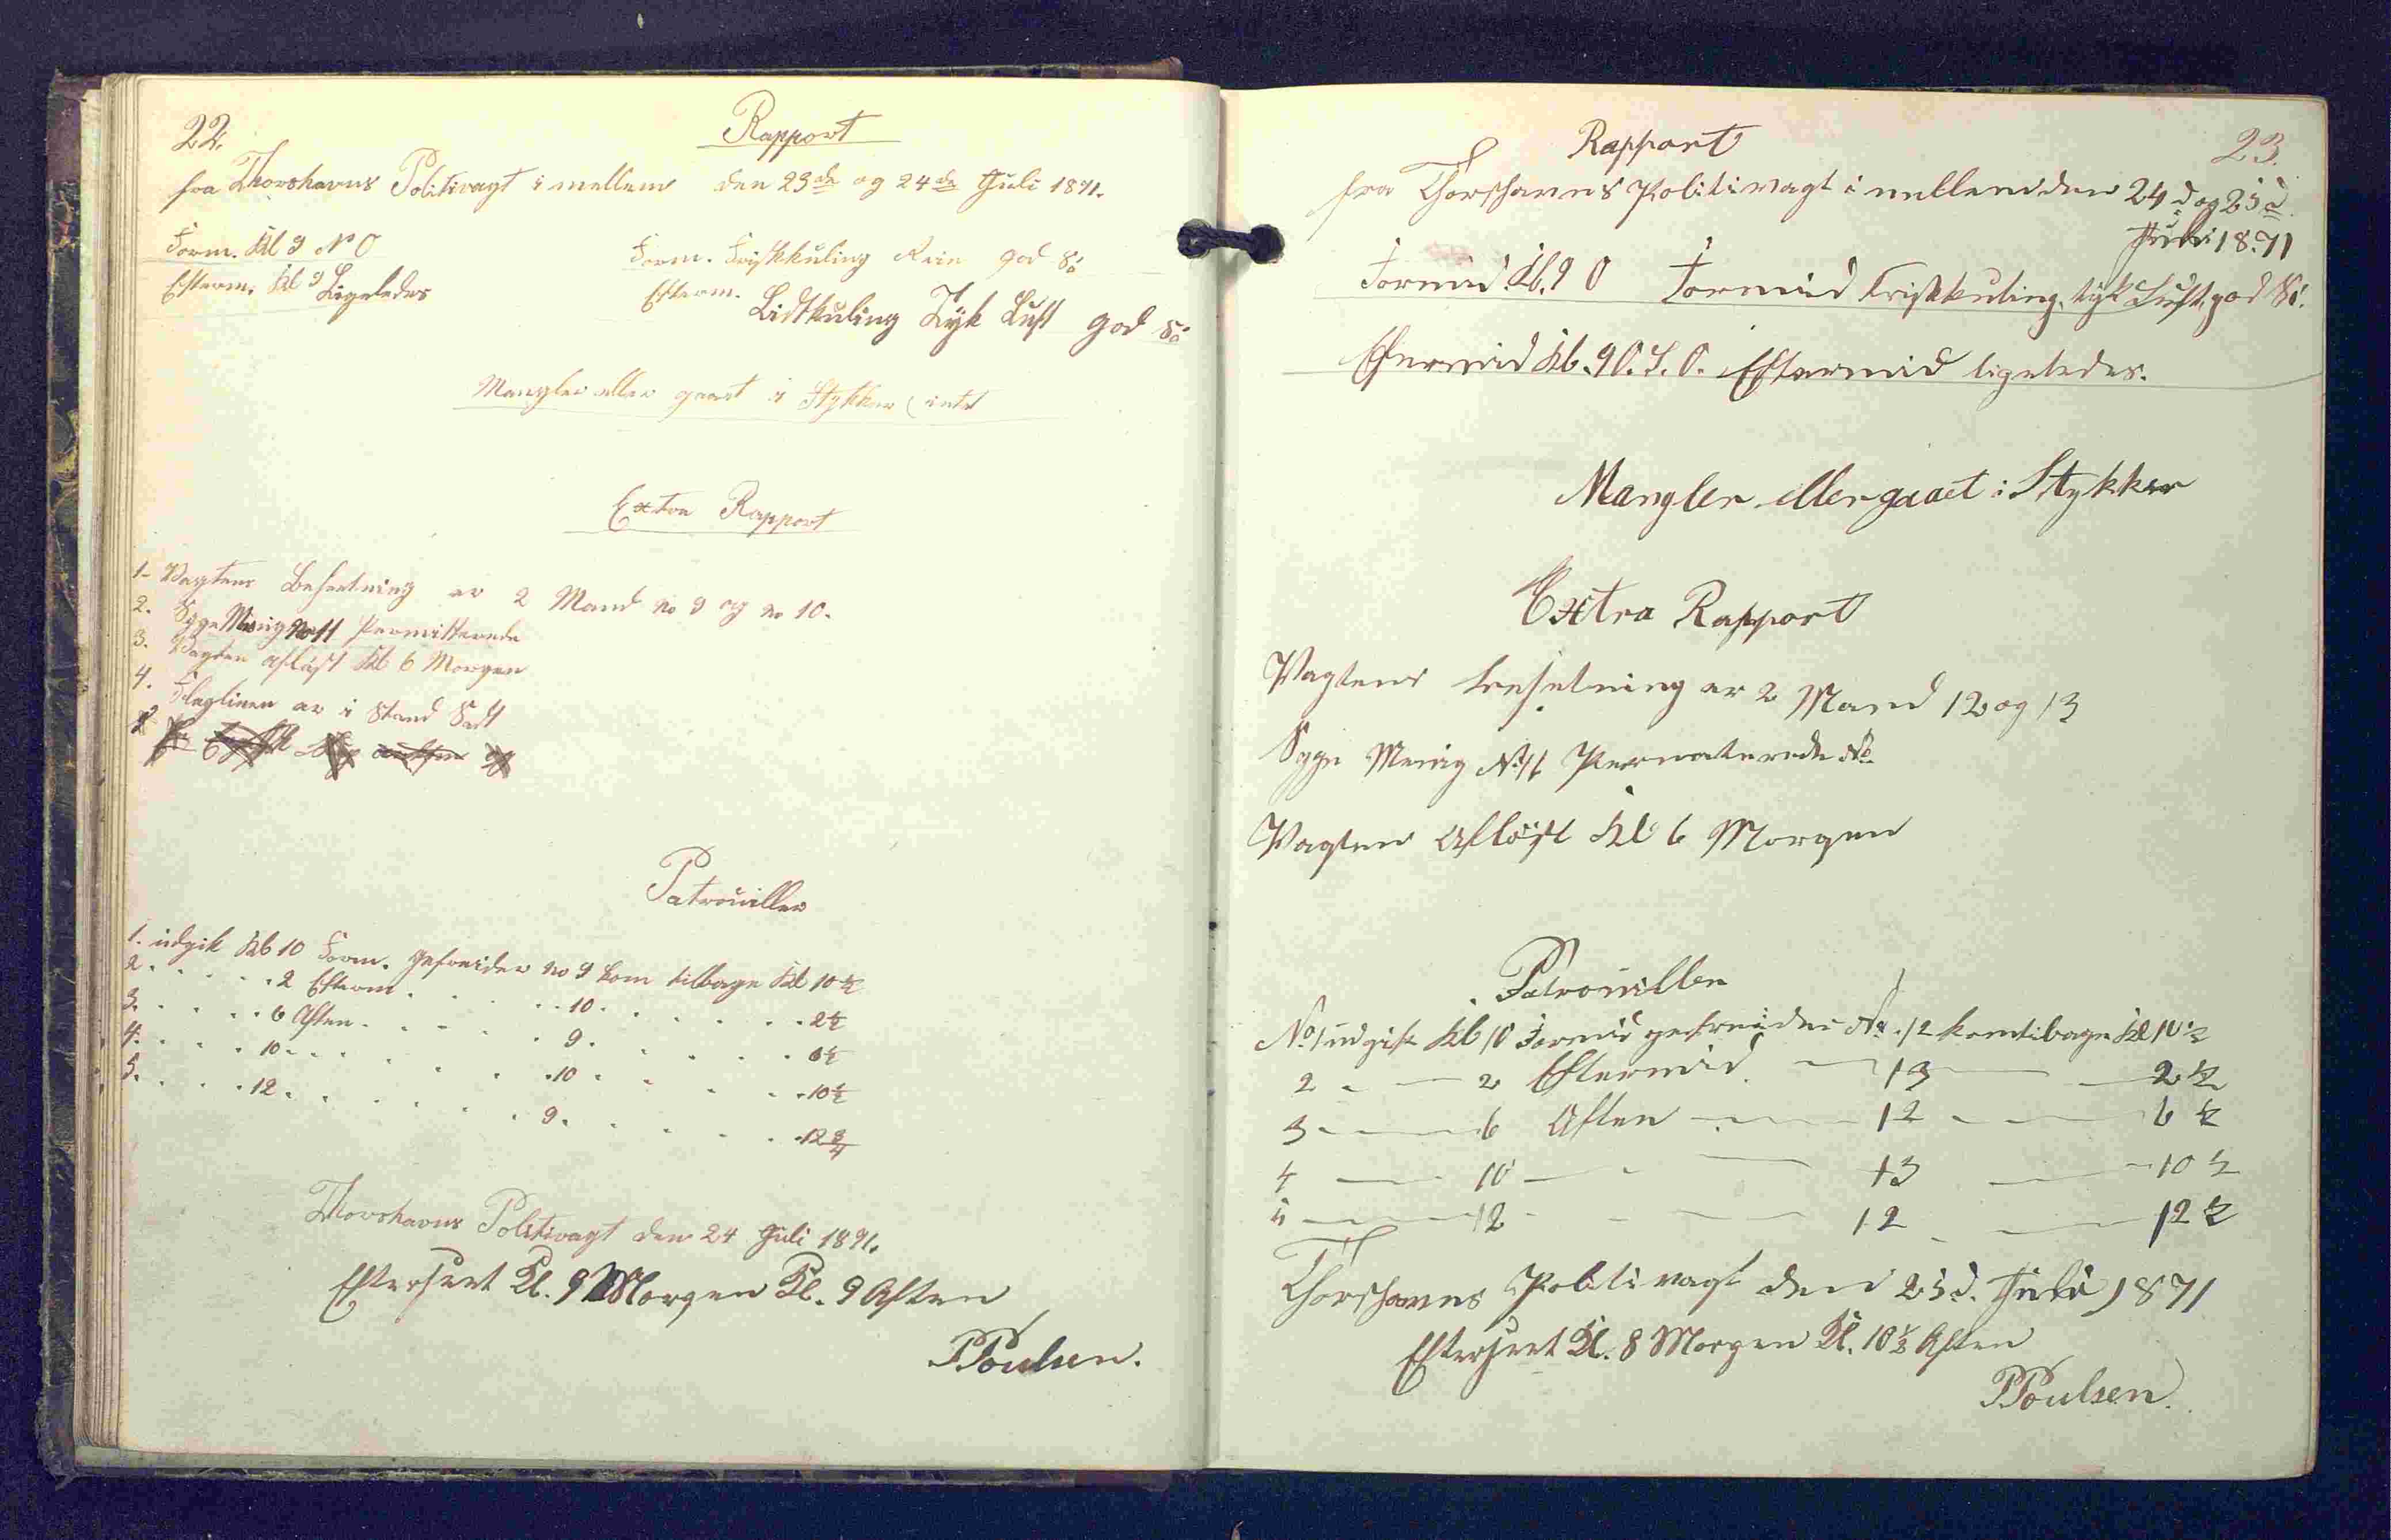 22.
Rapport
fra Thorshavns Politivagt i mellem den 23de og 24de Juli 1871.
Form. Kl 9 N O
Form. Friskkuling Rein god Sö
Efterm. Kl 9 Ligeledes
Efterm. Lidtkuling Tyk Luft god Sö
Mangler eller gaaet i Stykker (intet
Extra Rapport
1- Vagtens Besætning er 2 Mand no 9 og no 10.
2. Syge Menig No 11 Permitterede
3. Vagten aflöst Kl 6 Morgen
4. Flaglinen er i Stand Sadt
Patrouiller
1. udgik Kl 10 Form. gefreider no 9 kom tilbage Kl 10 1/2
2. . . . . 2 Efterm. . . . . 10 . . . . . 2 1/2
3. . . . . 6 Aften. . . . . 9 . . . . . 6 1/2
4. . . . . 10 . . . . . . 10 . . . . . 10 1/2
5. . . . . 12 . . . . . . 9 . . . . . 12 3/4
Thorshavns Politivagt den 24 Juli 1871.
Efterseet Kl. 9 Morgen Kl. 9 Aften
PPoulsen.
23.
Rapport
fra Thorshavns Politivagt i mellem den 24d og 25d
Juli 1871
Formid. Kl. 9 O Formid Friskkuling, tyk Luft, god Sö.
Eftermid Kl. 9 O. S. O. Eftermid ligeledes.
Mangler eller gaaet i Stykker
Extra Rapport
Vagtens besetning er 2 Mand 12 og 13
Syge Menig No 11 Permaterede No
Vagten Aflöst Kl 6 Morgen
Patrouiller
No 1 udgik Kl 10 Formid gefreider No 12 kom tibage Kl 10 1/2
2 - — 2 Eftermid. — 13 — — 2 1/2
3 - — 6 Aften — — 12 - — 6 1/2
4 — 10 — - — 13 — 10 1/2
5 — 12 - - — 12 - — 12 1/2
Thorshavns Politivagt den 25d. Juli 1871
Efterseet Kl. 8 Morgen Kl. 10 1/2 Aften
PPoulsen.